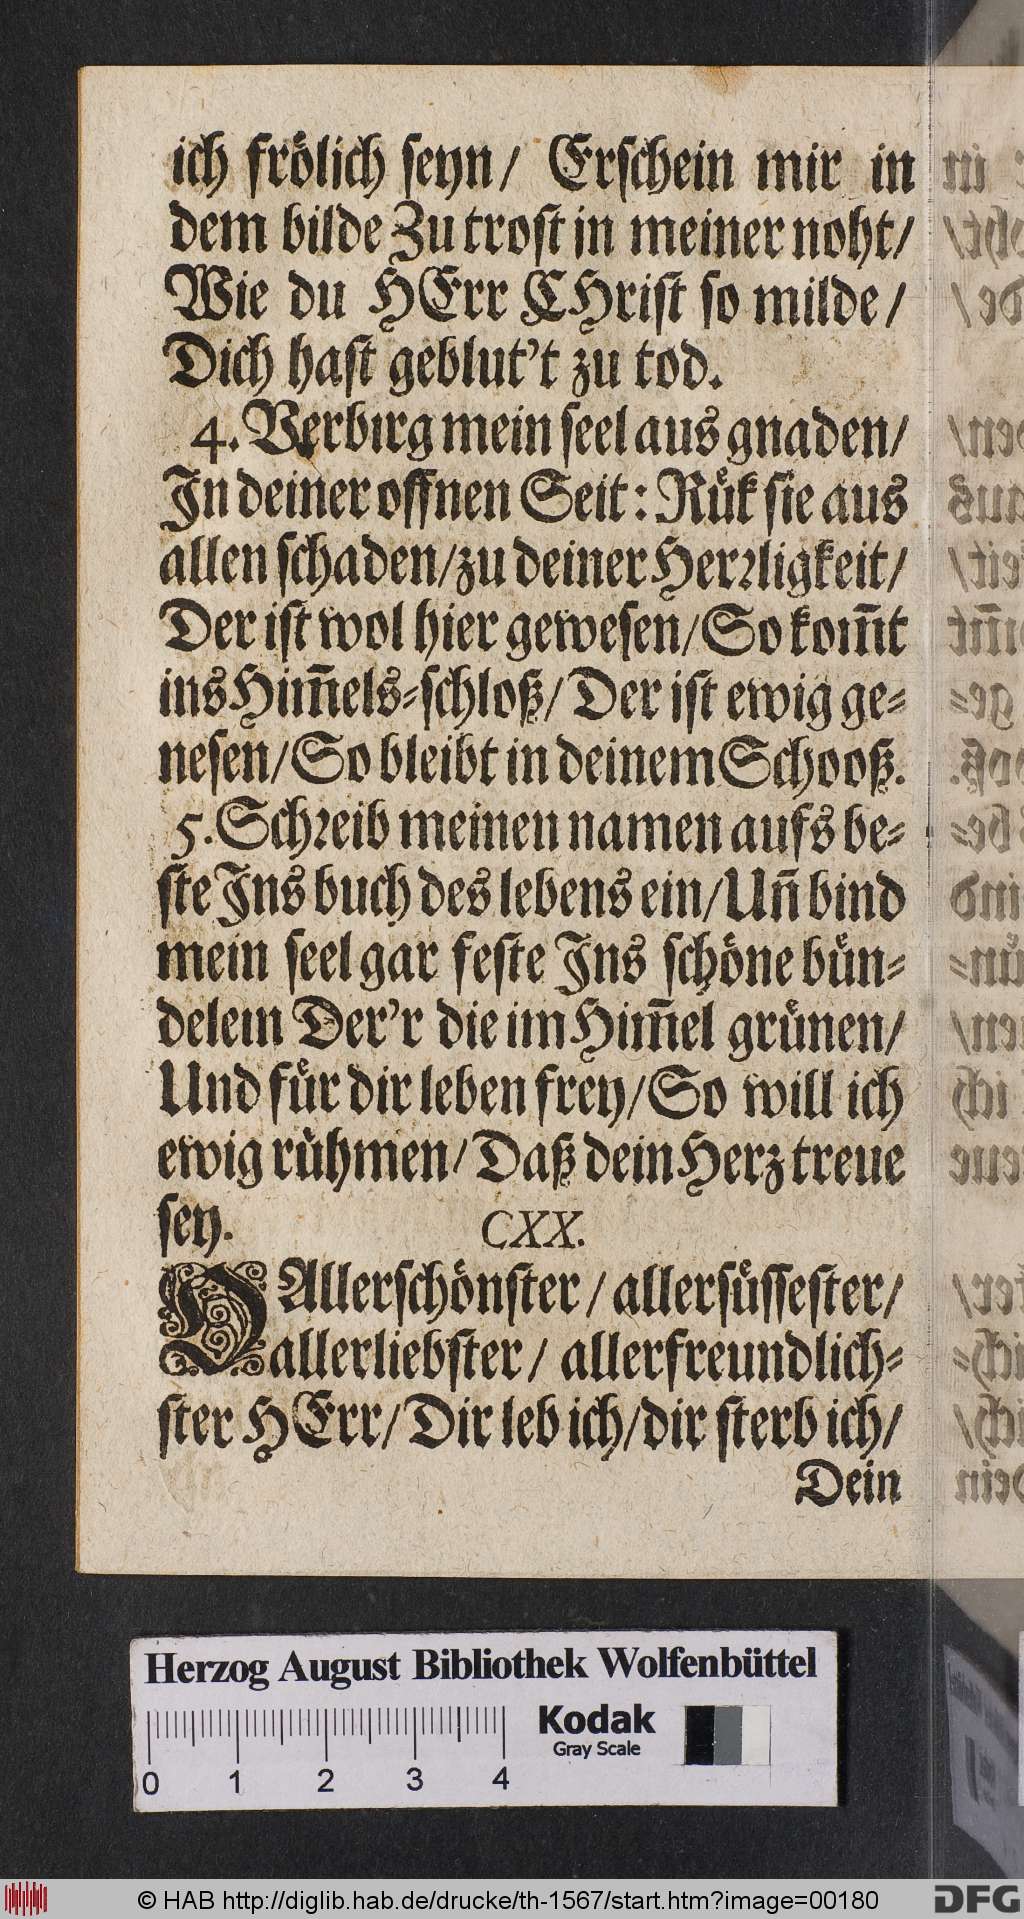 ich frölich seyn/ Erschein mir in
dem bilde Zu trost in meiner noht/
Wie du HErr CHrist so milde/
Dich hast geblut't zu tod.
4. Verbirg mein seel aus gnaden/
In deiner offnen Seit: Rük sie aus
allen schaden/zu deiner Herrligkeit/
Der ist wol hier gewesen/So kom̃t
ins Him̃els-schloß/Der ist ewig ge-
nesen/So bleibt in deinem Schooß.
5. Schreib meinen namen aufs be-
ste Ins buch des lebens ein/Uñ bind
mein seel gar feste Ins schöne bün-
delein Der'r die im Him̃el grünen/
Und für dir leben frey/So will ich
ewig rühmen/Daß dein Herz treue
sey. CXX.
O Allerschönster/allersüssester/
allerliebster/allerfreundlich-
ster HErr/Dir leb ich/dir sterb ich/
Dein
Herzog August Bibliothek Wolfenbüttel
Kodak
Gray Scale
0 1 2 3 4
© HAB http://diglib.hab.de/drucke/th-1567/start.htm?image=00180 DFG